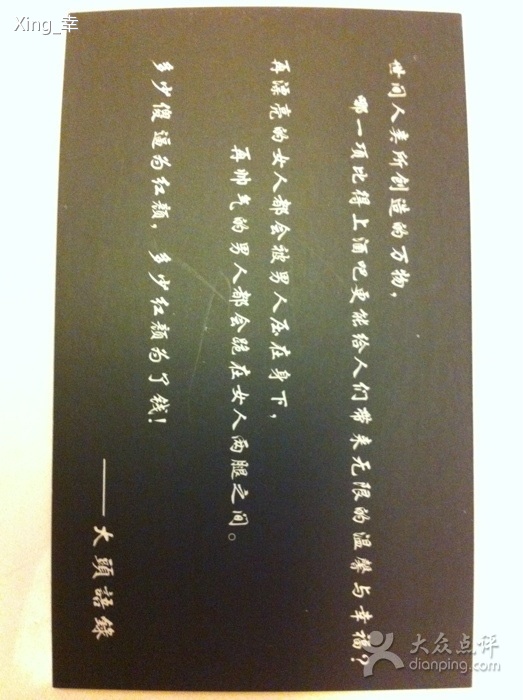 Xing_幸
世间人类所创造的万物，
哪一项比得上酒吧更能给人们带来无限的温馨与幸福？
再漂亮的女人都会被男人压在身下，
再帅气的男人都会跪在女人两腿之间。
多少傻逼为红颜，多少红颜为了钱！
——大頭語錄
大众点评
dianping.com